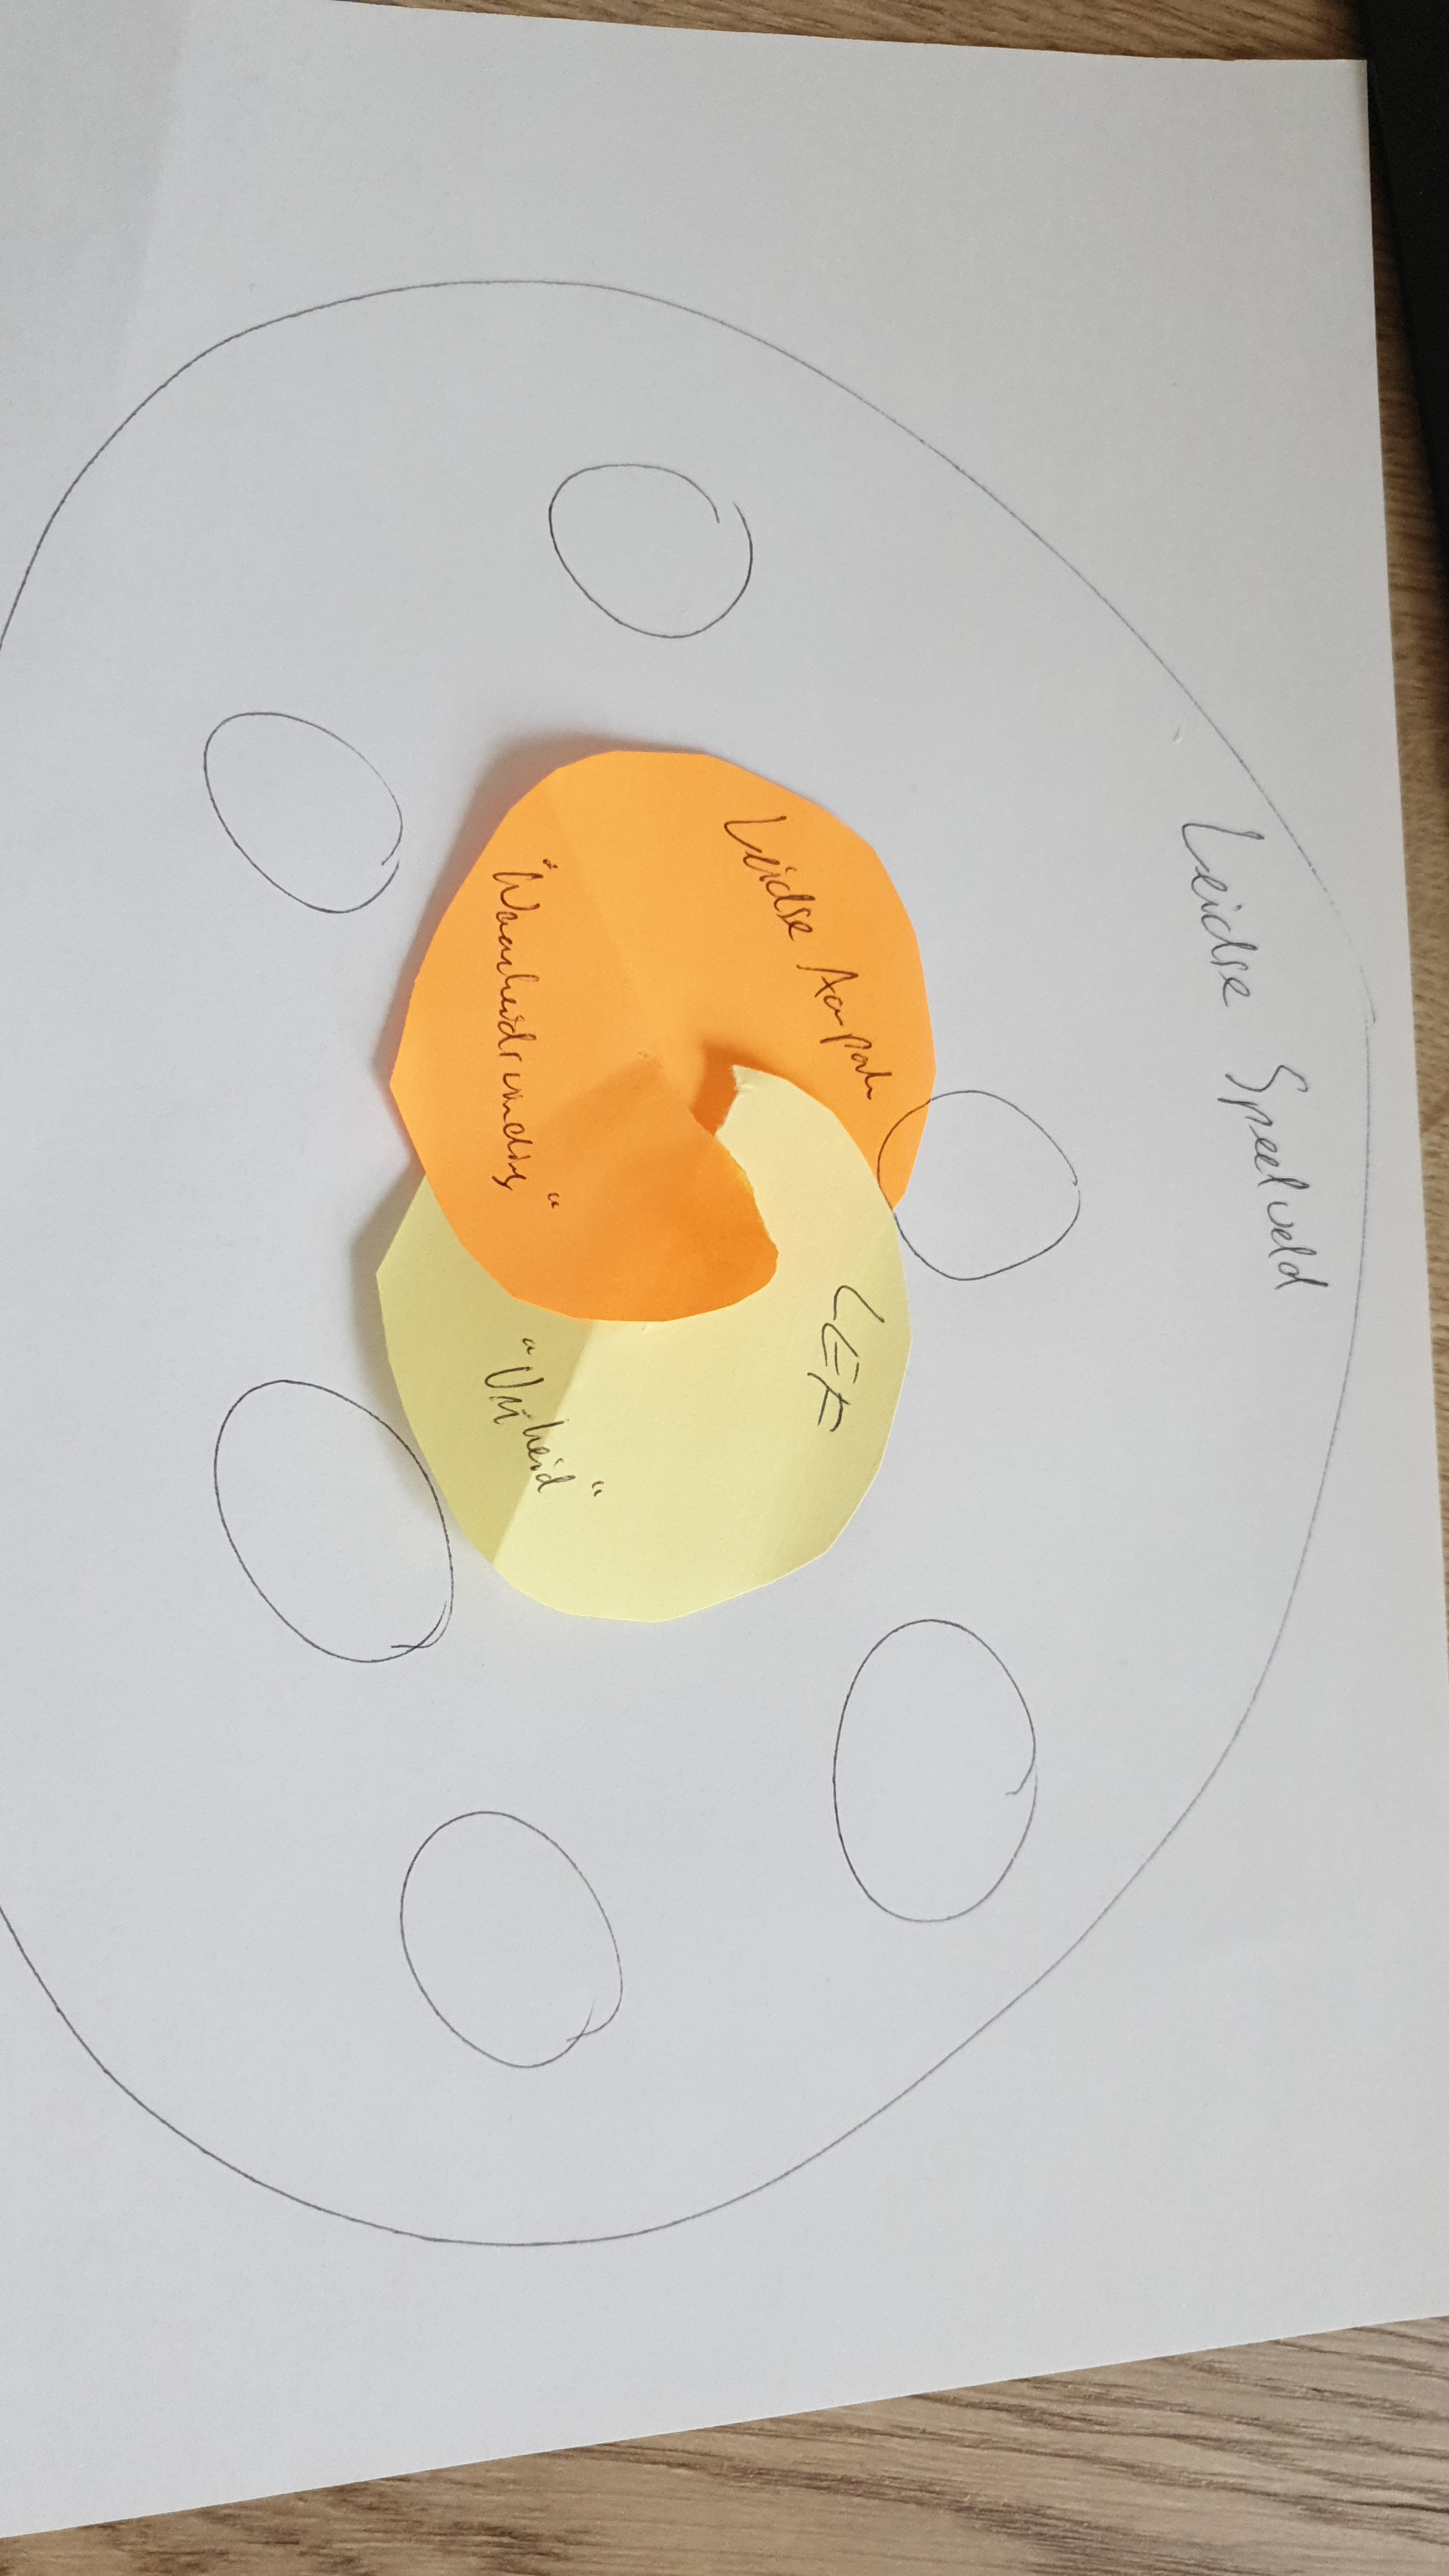 Leidse Speelveld
Leidse Aanpak
"Waarheidsvinding"
LEF
"Vrijheid"